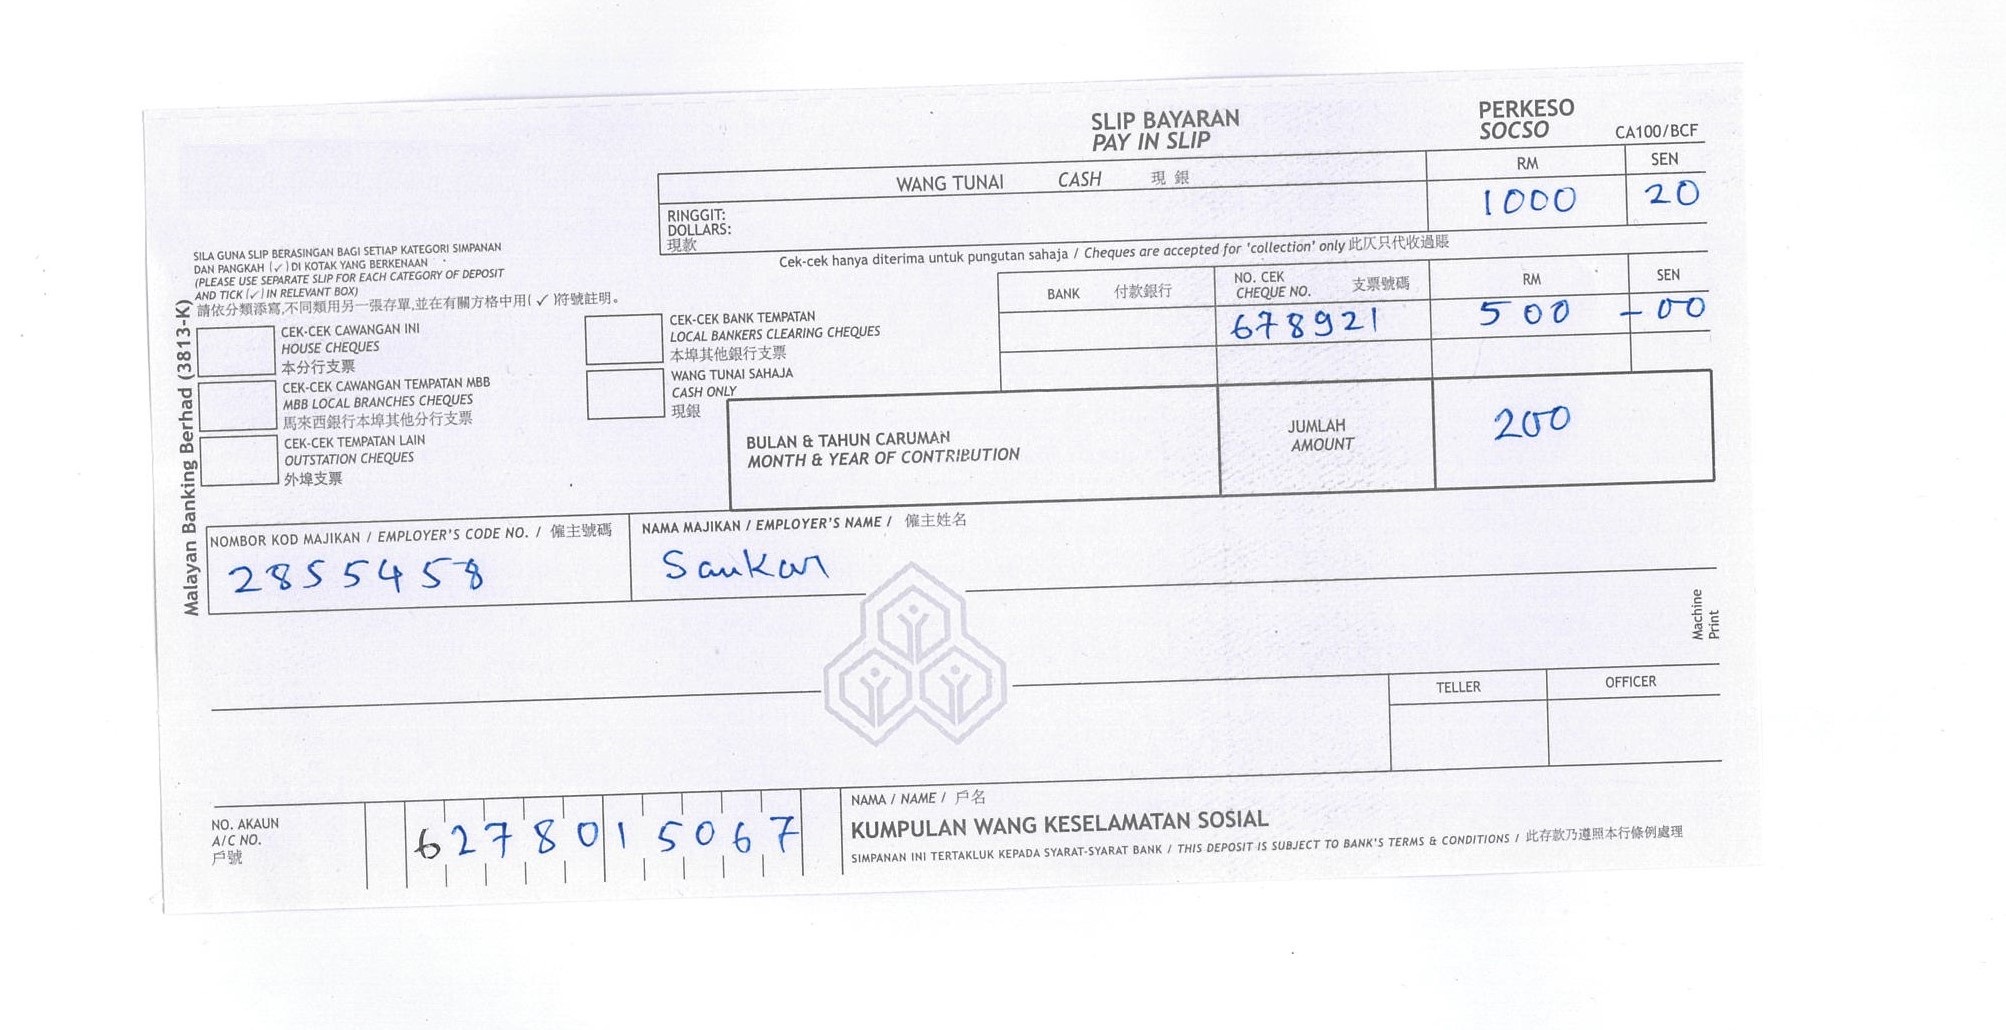 SLIP BAYARAN
PAY IN SLIP
PERKESO
SOCSO
CA100/BCF
WANG TUNAI CASH 現銀 RM SEN
RINGGIT:
DOLLARS:
現款
1000 20
Cek-cek hanya diterima untuk pungutan sahaja / Cheques are accepted for 'collection' only 此仄只代收過賬
SILA GUNA SLIP BERASINGAN BAGI SETIAP KATEGORI SIMPANAN
DAN PANGKAH (✓) DI KOTAK YANG BERKENAAN
(PLEASE USE SEPARATE SLIP FOR EACH CATEGORY OF DEPOSIT
AND TICK (✓) IN RELEVANT BOX)
請依分類添寫,不同類用另一張存單,並在有關方格中用(✓)符號註明。
BANK 付款銀行
NO. CEK
CHEQUE NO. 支票號碼
RM SEN
678921 500 -00
Malayan Banking Berhad (3813-K)
CEK-CEK CAWANGAN INI
HOUSE CHEQUES
本分行支票
CEK-CEK CAWANGAN TEMPATAN MBB
MBB LOCAL BRANCHES CHEQUES
馬來西銀行本埠其他分行支票
CEK-CEK TEMPATAN LAIN
OUTSTATION CHEQUES
外埠支票
CEK-CEK BANK TEMPATAN
LOCAL BANKERS CLEARING CHEQUES
本埠其他銀行支票
WANG TUNAI SAHAJA
CASH ONLY
現銀
BULAN & TAHUN CARUMAN
MONTH & YEAR OF CONTRIBUTION
JUMLAH
AMOUNT
200
NOMBOR KOD MAJIKAN / EMPLOYER'S CODE NO. / 僱主號碼
2855458
NAMA MAJIKAN / EMPLOYER'S NAME / 僱主姓名
Sankar
Machine
Print
TELLER OFFICER
NO. AKAUN
A/C NO.
戶號
6278015067
NAMA / NAME / 戶名
KUMPULAN WANG KESELAMATAN SOSIAL
SIMPANAN INI TERTAKLUK KEPADA SYARAT-SYARAT BANK / THIS DEPOSIT IS SUBJECT TO BANK'S TERMS & CONDITIONS / 此存款乃遵照本行條例處理